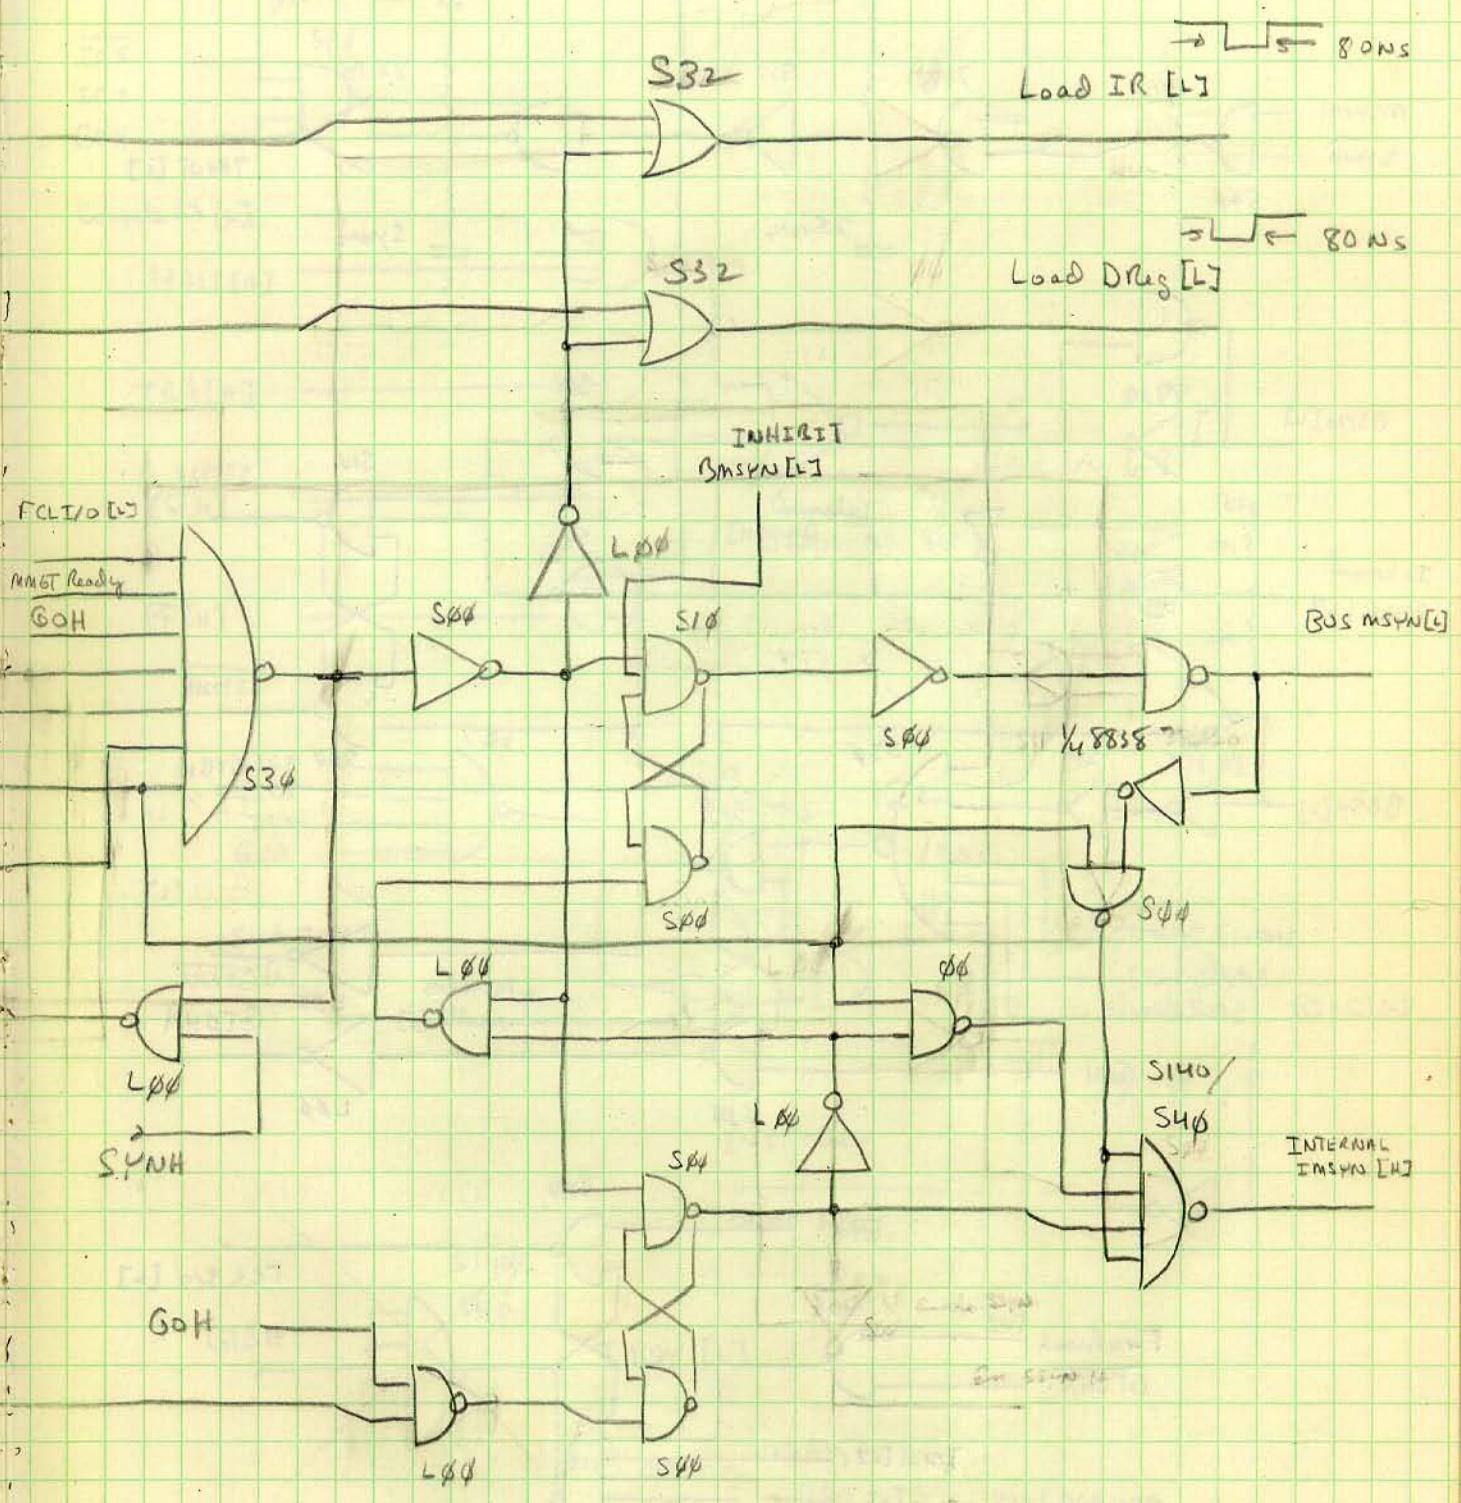 80NS
S32
Load IR [L]
80NS
S32
Load DReg [L]
INHIBIT
BMSYN[L]
FCLI/O [L]
MMGT Ready
GOH
L00
S00
S10
BUS MSYN[L]
S04
1/4 8838
S30
S00
S00
L00
00
L00
S140/
S40
L00
SYNH
S00
INTERNAL
IMSYN [H]
GOH
L00
S00